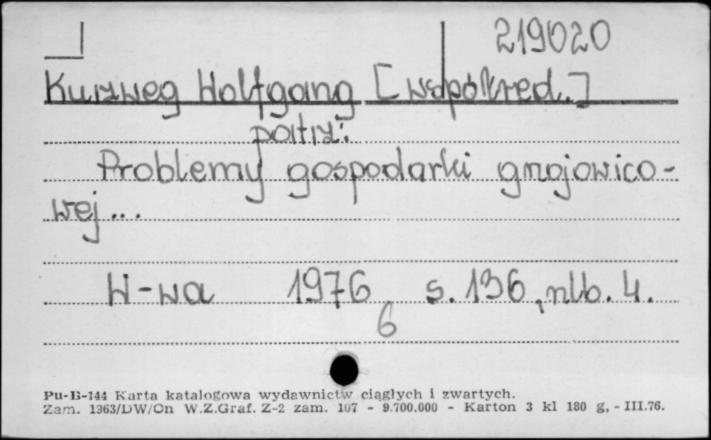 219020
Kurzweg Wolfgang [współred.]
patrz:
Problemy gospodarki gnojowico-
wej...
W-wa 1976 s. 136, nlb. 4.
6
Pu-B-144 Karta katalogowa wydawnictw ciągłych i zwartych.
Zam. 1363/DW/On W.Z.Graf. Z-2 zam. 107 - 9.700.000 - Karton 3 kl 180 g, - III.76.